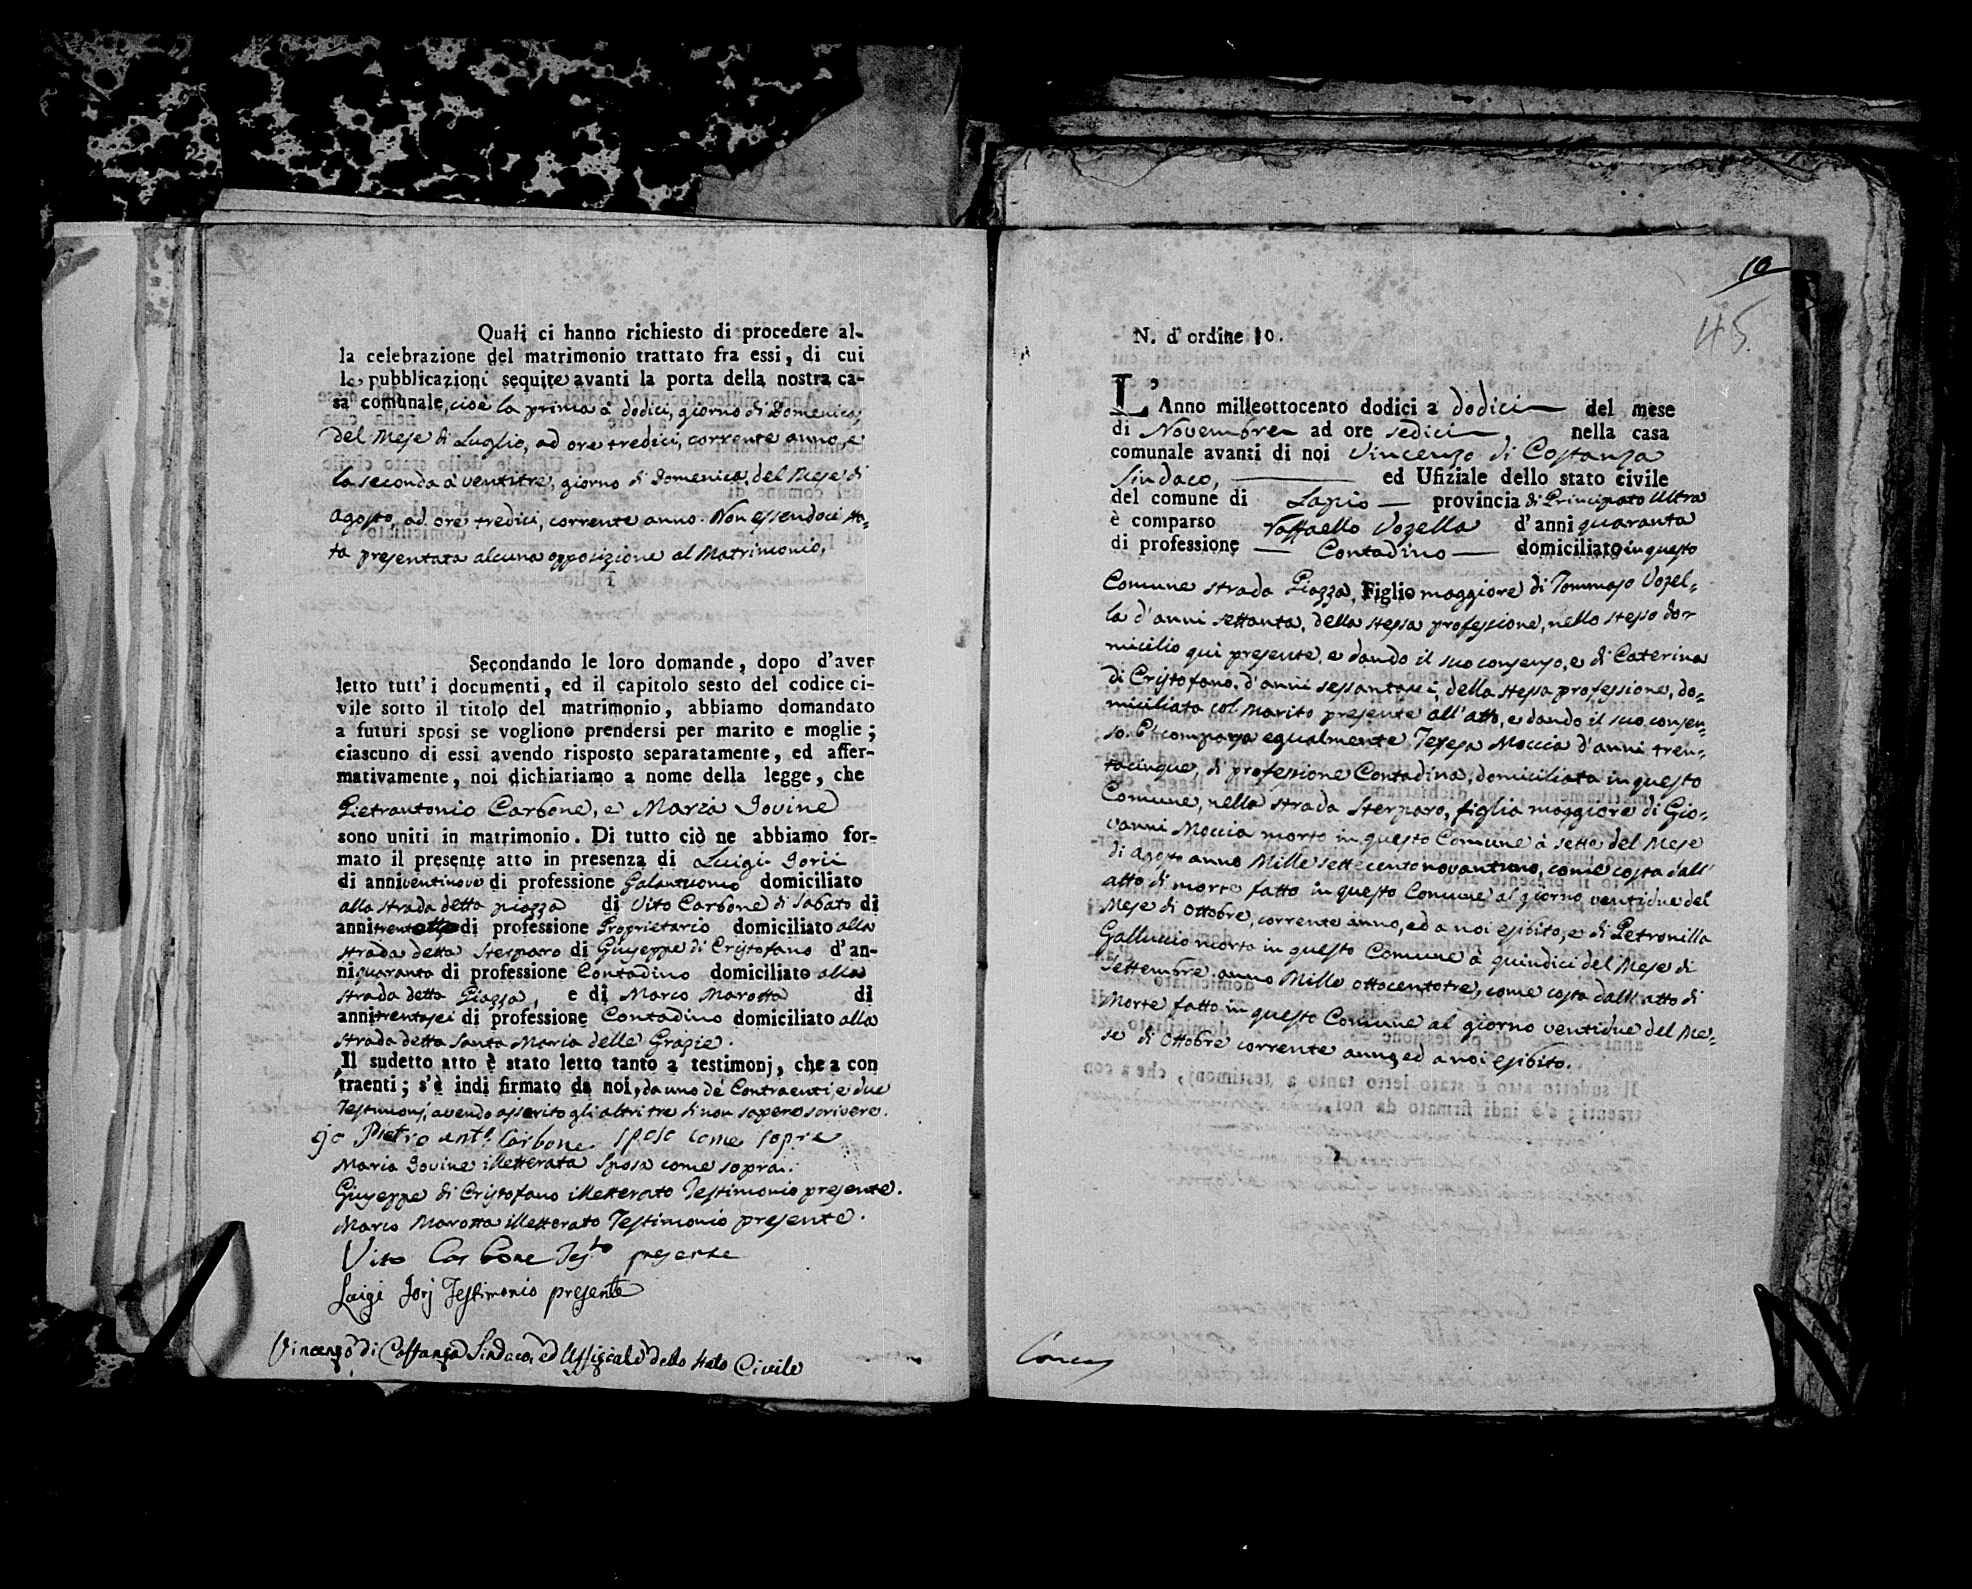 Quali ci hanno richiesto di procedere al-
la celebrazione del matrimonio trattato fra essi, di cui
le pubblicazioni sequite avanti la porta della nostra ca-
sa comunale, cioè la prima à dodici, giorno di Domenica,
del Mese di Luglio, ad ore tredici, corrente anno, e
la seconda à ventitre, giorno di Domenica, del Mese di
Agosto, ad ore tredici, corrente anno. Non essendoci sta-
ta presentata alcuna opposizione al Matrimonio,
Secondando le loro domande, dopo d'aver
letto tutt'i documenti, ed il capitolo sesto del codice ci-
vile sotto il titolo del matrimonio, abbiamo domandato
a futuri sposi se vogliono prendersi per marito e moglie;
ciascuno di essi avendo risposto separatamente, ed affer-
mativamente, noi dichiariamo a nome della legge, che
Pietrantonio Carbone, e Maria Iovine
sono uniti in matrimonio. Di tutto ciò ne abbiamo for-
mato il presente atto in presenza di Luigi Iorii
di anni ventinove di professione Galantuomo domiciliato
alla strada detta piazza di Vito Carbone di Sabato di
anni di professione Proprietario domiciliato alla
strada detta Sterparo di Giuseppe di Cristofano d'an-
ni quaranta di professione Contadino domiciliato alla
strada detta Piazza, e di Marco Marotta di
anni trentasei di professione Contadino domiciliato alla
strada detta Santa Maria delle Grazie.
Il sudetto atto è stato letto tanto a testimonj, che a con
traenti; s'è indi firmato da noi, da uno de' Contraenti, e due
Testimonj, avendo asserito gli altri tre di non sapere scrivere.
Io Pietro ant.o Carbone sposo come sopra
Maria Iovine illetterata Sposa come sopra.
Giuseppe di Cristofano illetterato Testimonio presente.
Marco Marotta illetterato Testimonio presente.
Vito Carbone Tes.to presente
Luigi Iorj Testimonio presente
Vincenzo di Costanza Sindaco, ed Uffiziale dello stato Civile
10
45.
N. d'ordine 10.
L'Anno milleottocento dodici a dodici del mese
di Novembre ad ore sedici nella casa
comunale avanti di noi Vincenzo di Costanza
Sindaco, ed Ufiziale dello stato civile
del comune di Lapio provincia di Principato Ultra
è comparso Raffaello Vozella d'anni quaranta
di professione Contadino domiciliato in questo
Comune strada Piazza, Figlio maggiore di Tommaso Vozel-
la d'anni settanta, della stessa professione, nello stesso do-
micilio qui presente, e dando il suo consenso, e di Caterina
di Cristofano, d'anni sessantasei, della stessa professione, do-
miciliata col Marito presente all'atto, e dando il suo consen-
so. E' comparsa egualmente Teresa Moccia d'anni tren-
tacinque, di professione Contadina, domiciliata in questo
Comune, nella strada Sterparo, figlia maggiore di Gio-
vanni Moccia morto in questo Comune à sette del Mese
di Agosto anno Mille settecento novantuno, come costa dall'
atto di morte fatto in questo Comune al giorno ventidue del
Mese di Ottobre, corrente anno, ed a noi esibito, e di Petronilla
Galluccio morta in questo Comune à quindici del Mese di
Settembre anno Mille ottocentotre, come costa dall'atto di
Morte fatto in questo Comune al giorno ventidue del Me-
se di Ottobre corrente anno, ed a noi esibito.